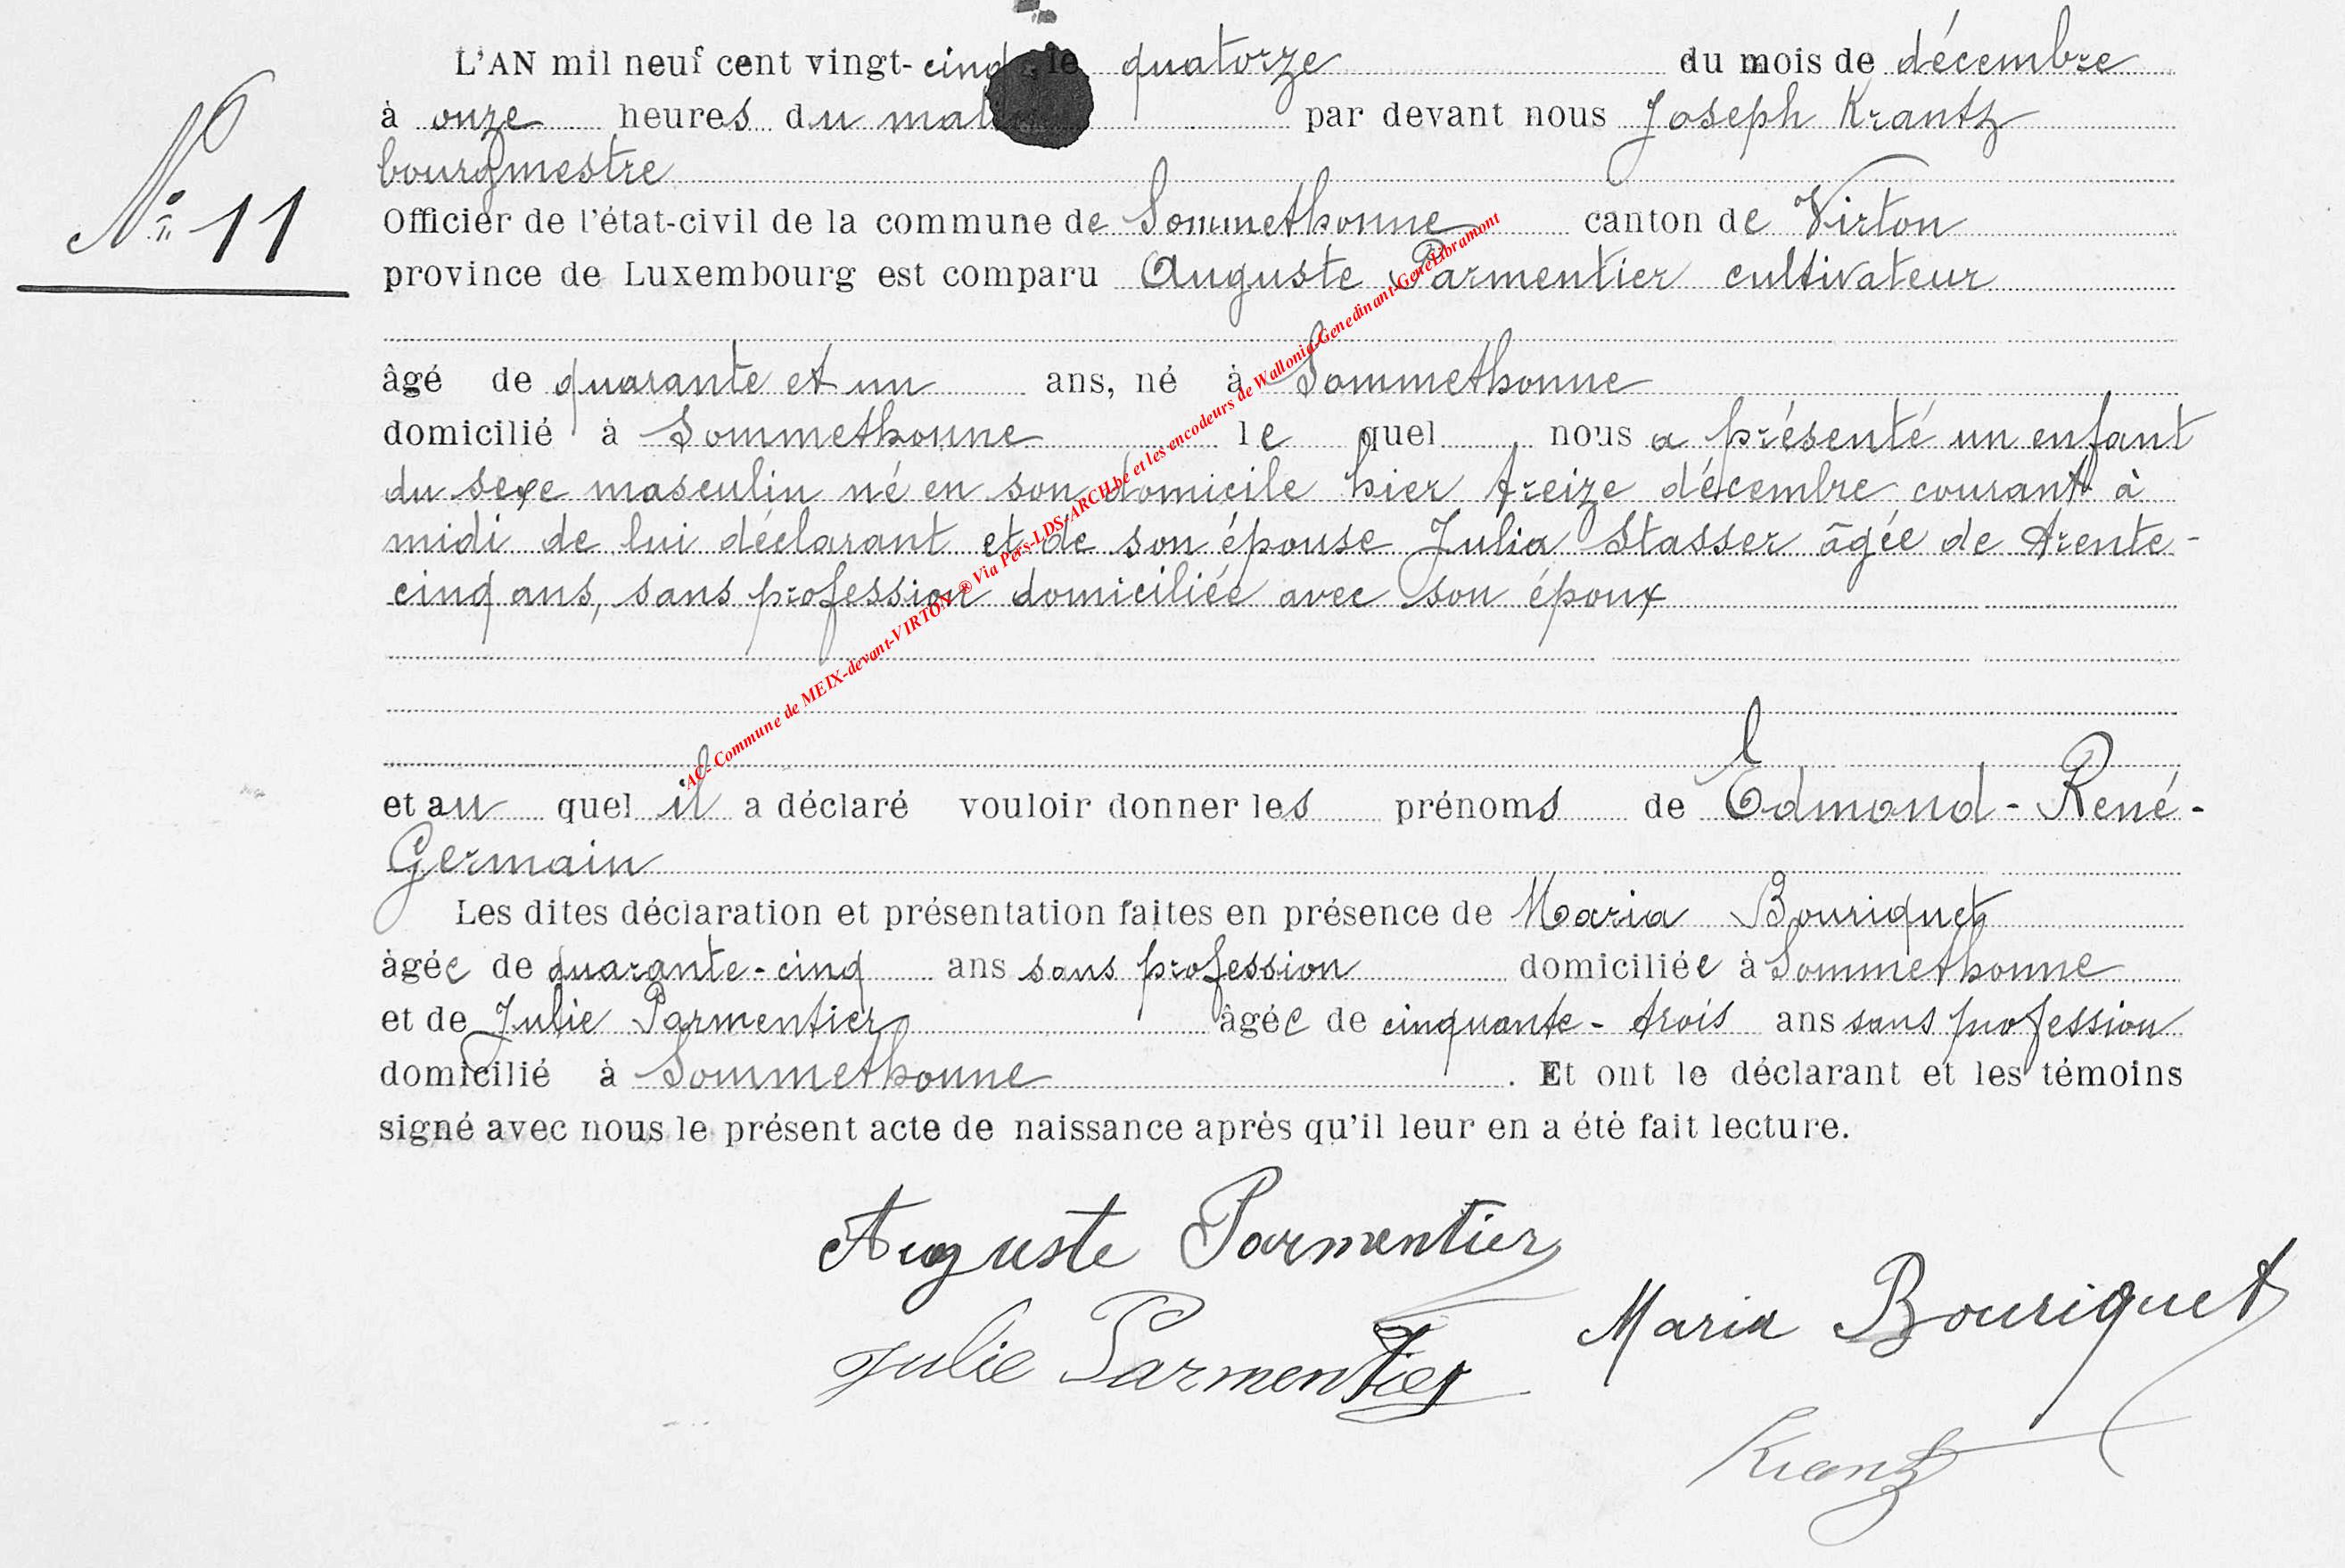 L'AN mil neuf cent vingt-cinq, le quatorze du mois de décembre
à onze heures du matin par devant nous Joseph Krantz
bourgmestre
N° 11
Officier de l'état-civil de la commune de Sommethonne canton de Virton
province de Luxembourg est comparu Auguste Parmentier cultivateur
âgé de quarante et un ans, né à Sommethonne
domicilié à Sommethonne le quel nous a présenté un enfant
du sexe masculin né en son domicile hier treize décembre courant à
midi de lui déclarant et de son épouse Julia Stasser âgée de trente-
cinq ans, sans profession domiciliée avec son époux
AC- Commune de MEIX-devant-VIRTON ® Via Pers-LDS-ARCH.be et les encodeurs de Wallonia-Genedinant-GeneLibramont
et au quel il a déclaré vouloir donner les prénoms de Edmond-René-
Germain
Les dites déclaration et présentation faites en présence de Maria Bouriquet
âgée de quarante-cinq ans sans profession domiciliée à Sommethonne
et de Julie Parmentier âgée de cinquante-trois ans sans profession
domicilié à Sommethonne. Et ont le déclarant et les témoins
signé avec nous le présent acte de naissance après qu'il leur en a été fait lecture.
Auguste Parmentier
Maria Bouriquet
Julie Parmentier
Krantz